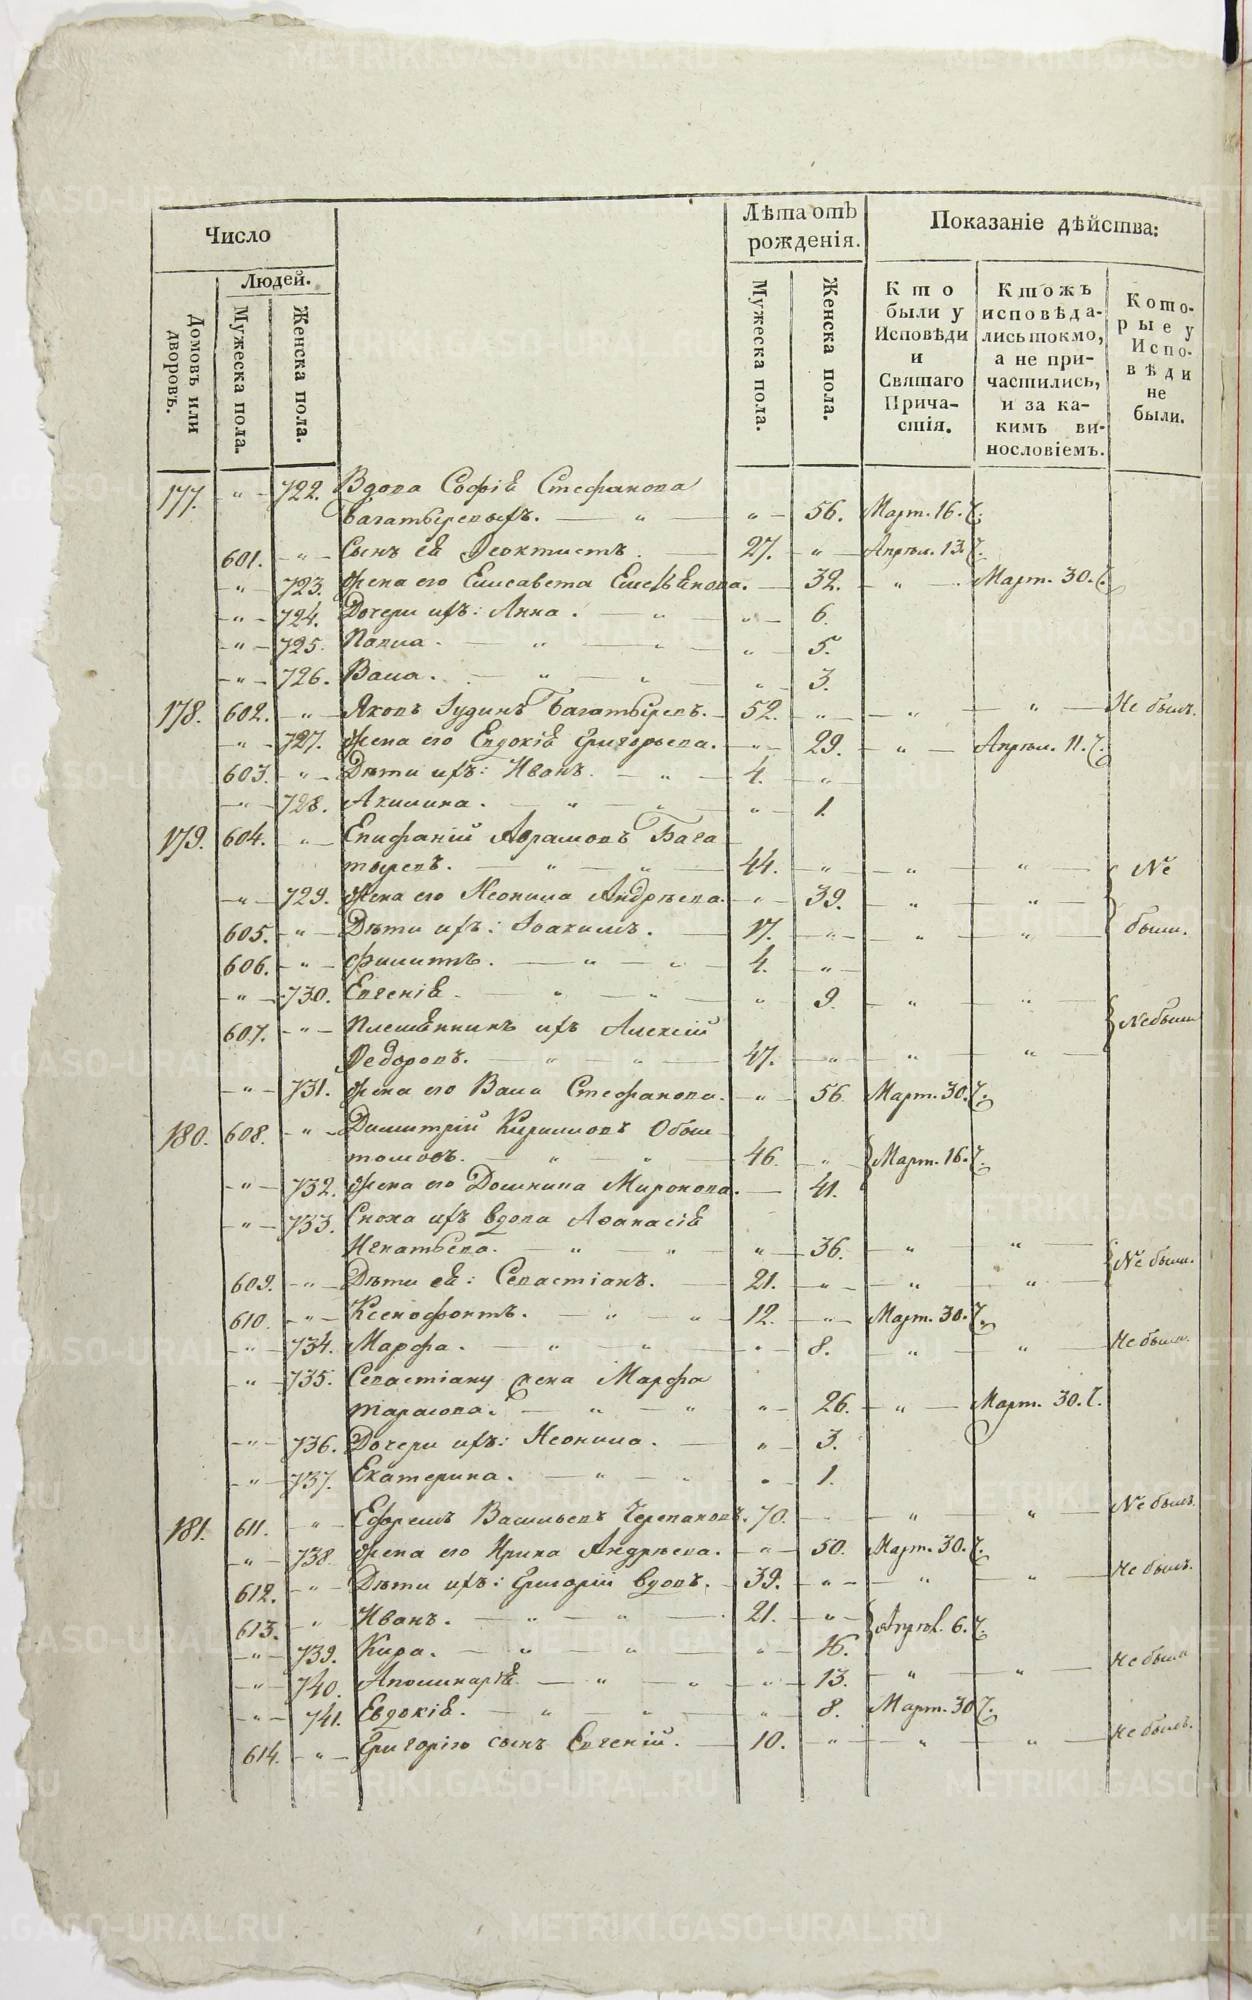 Число
Лѣта отъ рожденія.
Показаніе дѣйства:
Людей.
Домовъ или дворовъ.
Мужеска пола.
Женска пола.
Мужеска пола.
Женска пола.
Кто были у Исповѣди и Святаго Прича-стія.
Ктожъ исповѣда-лись токмо, а не при-частились, и за ка-кимъ ви-нословіемъ.
Кото-рые у Испо-вѣди не были.
177. " 722. Вдова Софія Стефанова
Багатыревыхъ. " " 56. Март. 16.
601. " Сынъ ея Ѳеоктистъ. 27. " Апрѣл. 13.
" 723. Жена его Елисавета Емельянова. 32. " Март. 30.
" 724. Дочери ихъ: Анна. " " 6.
" 725. Павла. " " " 5.
" 726. Васса. " " " 3.
178. 602. " Яковъ Іудинъ Багатыревъ. 52. " " " Не былъ.
" 727. Жена его Евдокія Григорьева. " 29. " Апрѣл. 11.
603. " Дѣти ихъ: Иванъ. " 4. "
" 728. Акилина. " " " 1.
179. 604. " Епифаній Аврамовъ Бага
тыревъ. " " 44. " " " Не
" 729. Жена его Неонила Андрѣева. " 39. " "
605. " Дѣти ихъ: Іоакимъ. 17. " " " были.
606. " Филиппъ. " " 4. "
" 730. Евгенія. " " " 9. " "
607. " Племянникъ ихъ Алексій Не были
Ѳедоровъ. " " 47. " " "
" 731. Жена его Васса Стефанова. " 56. Март. 30.
180. 608. " Димитрій Кириловъ
" " 46. " Март. 16.
" 732. Жена его Домника Миронова. 41.
" 733. Сноха ихъ вдова Аѳанасія
Игнатьева. " " " 36. " " Не были.
609. " Дѣти ея: Севастіанъ. 21. " " "
610. " Ксенофонтъ. " " 12. " Март. 30.
" 734. Марфа. " " " 8. " " Не была.
" 735. Севастіану жена Марфа
Тарасова. " " " 26. " Март. 30.
" 736. Дочери ихъ: Неонила. " 3.
" 737. Екатерина. " " " 1.
181. 611. " Ефремъ Васильевъ Черепановъ. 70. " " Не былъ.
" 738. Жена его Ирина Андрѣева. " 50. Март. 30.
612. " Дѣти ихъ: Григорій вдовъ. 39. " " " Не былъ.
613. " Иванъ. " " 21. " Апрѣл. 6.
" 739. Кира. " " " 16.
" 740. Аполинарія. " " " 13. " " Не была
" 741. Евдокія. " " " 8. Март. 30
614. " Григорію сынъ Евгеній. 10. " " " Не былъ.
METRIKI.GASO-URAL.RU